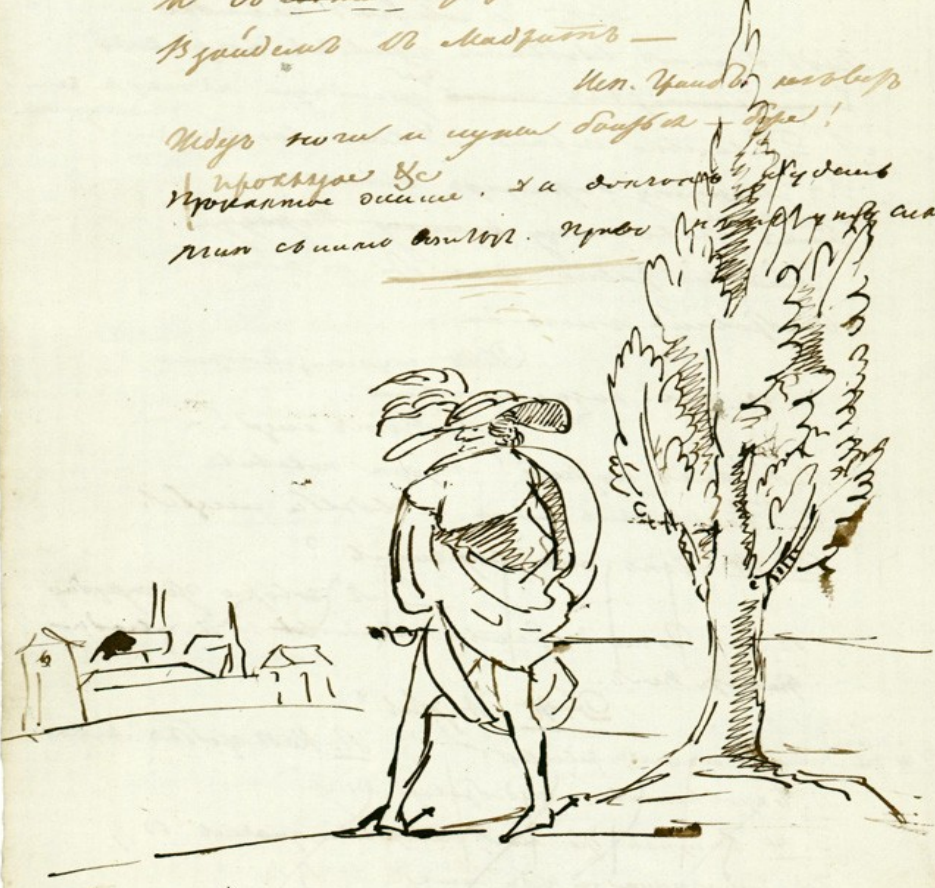 Взойдемъ въ Мадритъ —
Исп. Грандъ какъ воръ
Ждетъ ночи и луны боится — Боже!
Проклятое &c
Проклятое житье. Да долго ль будетъ
Мне съ нимъ возиться. Право